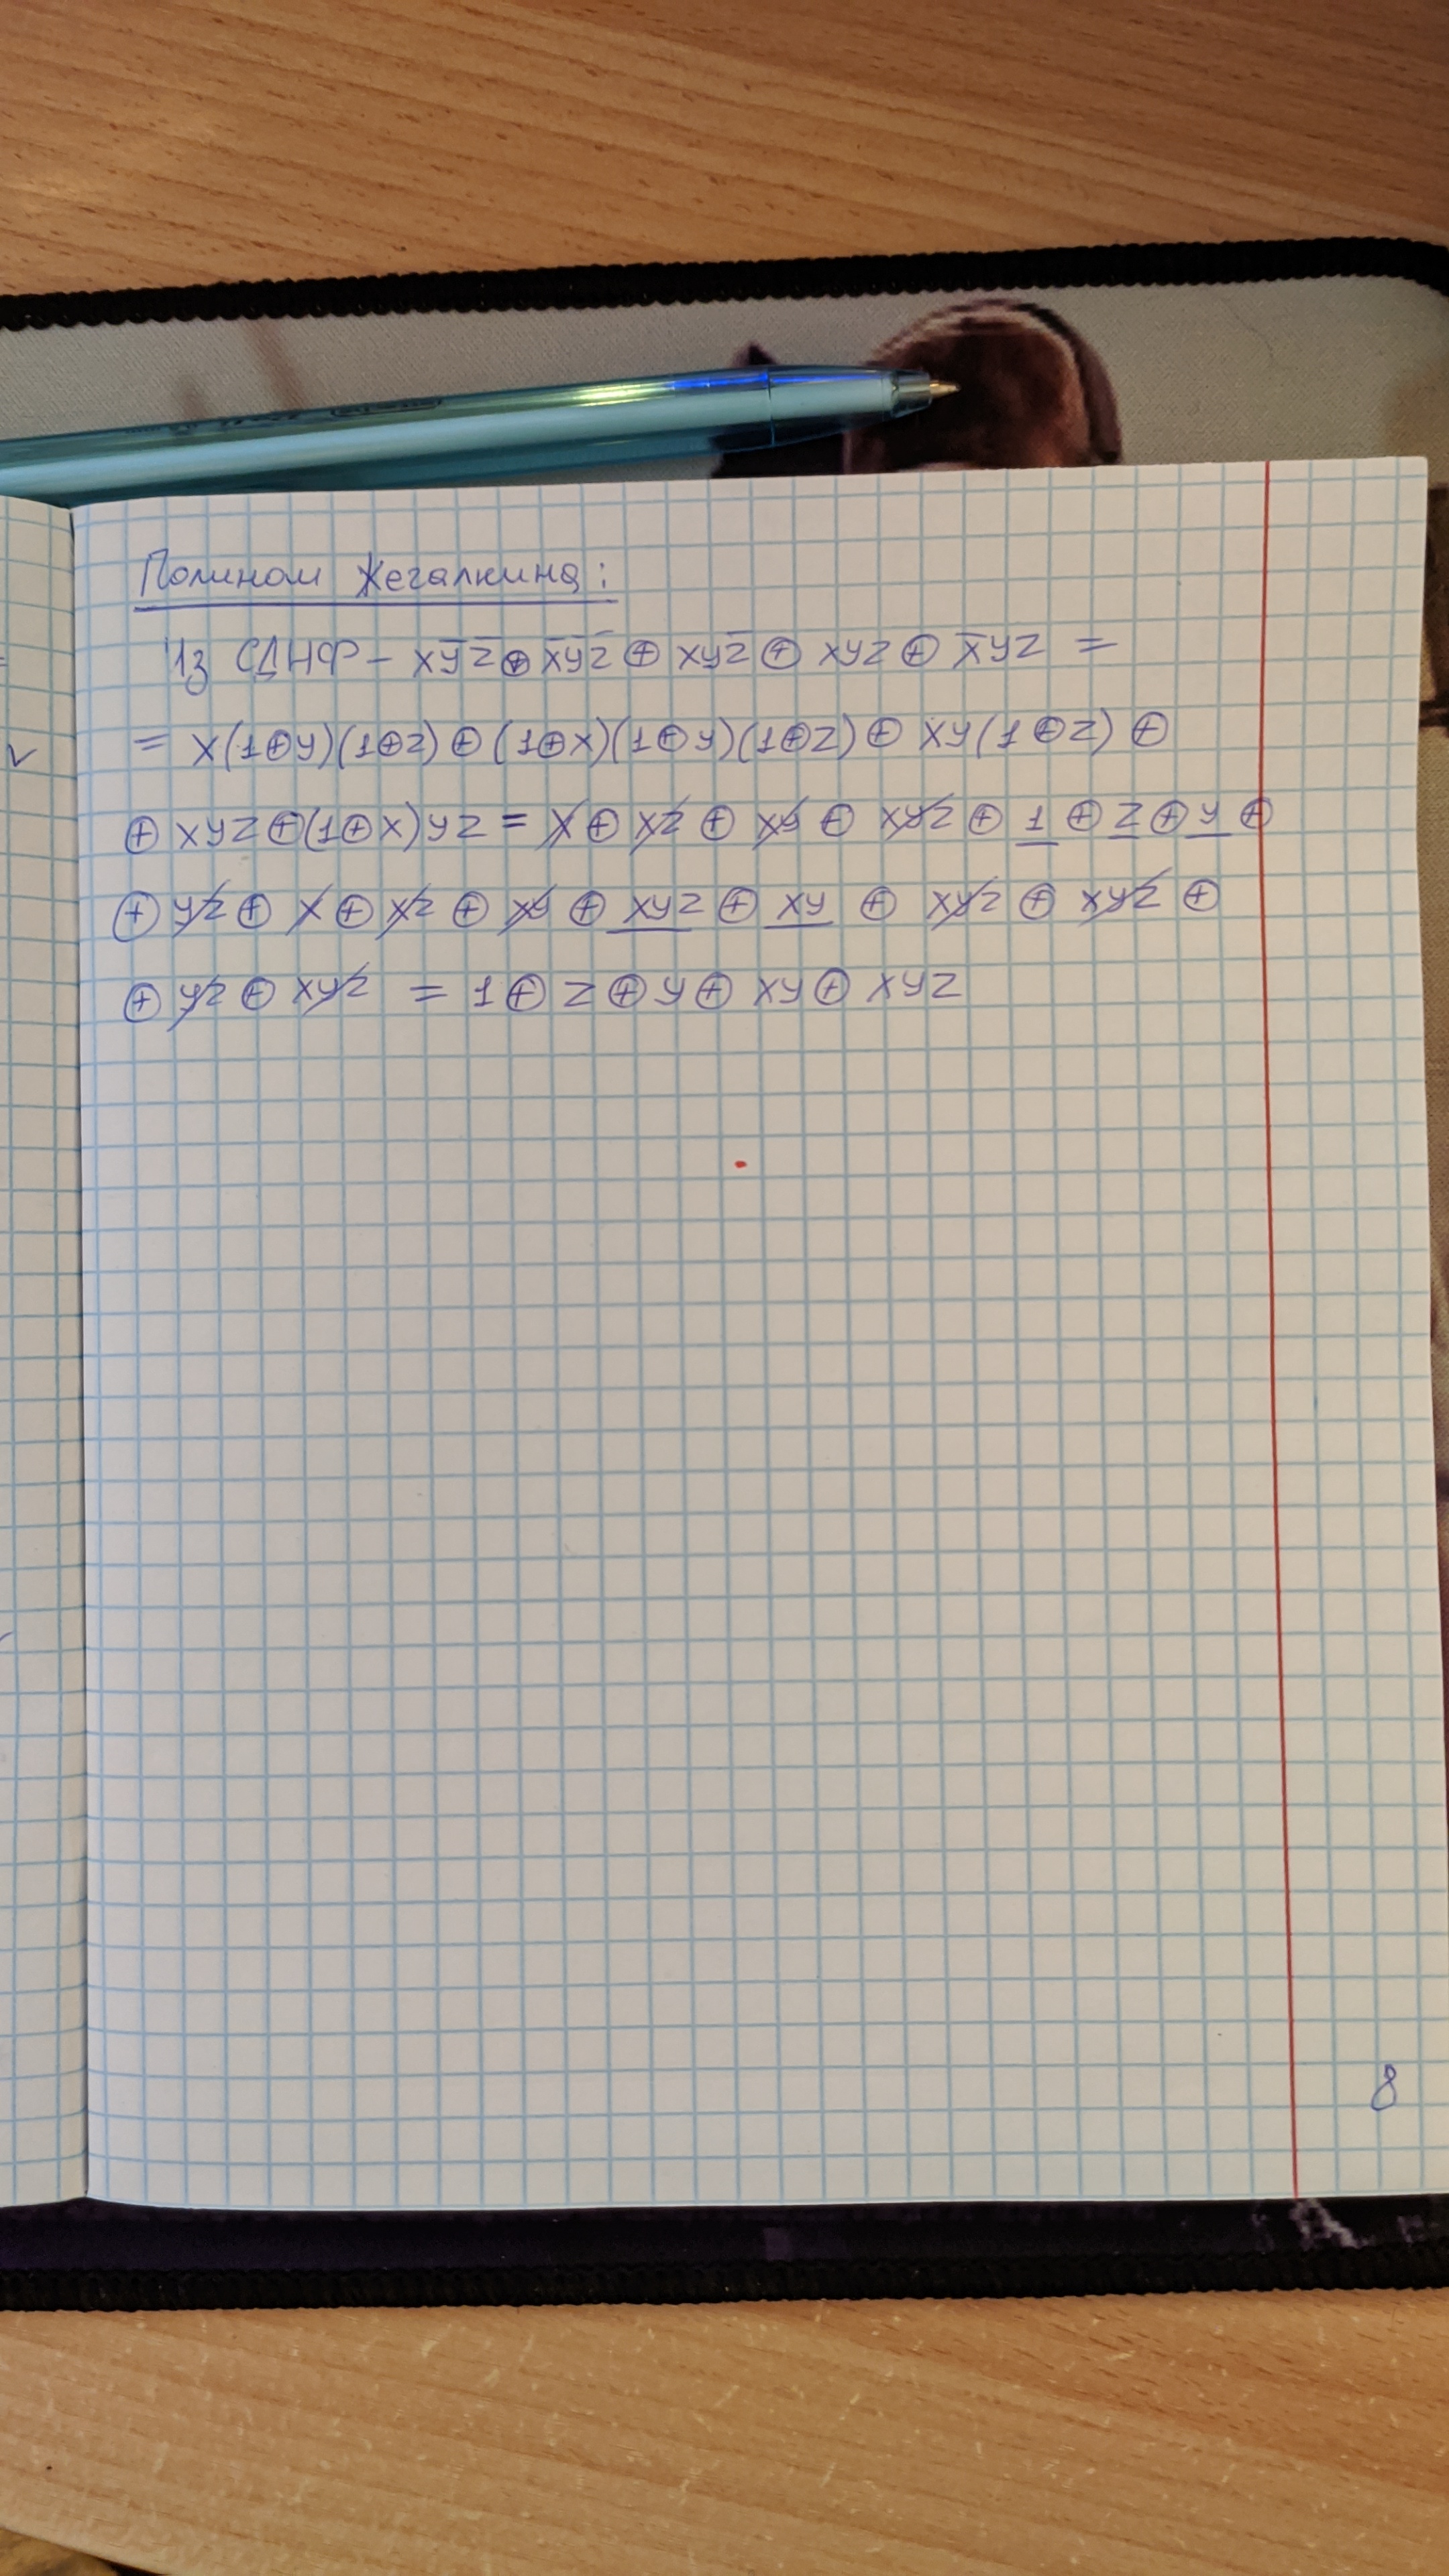 Полином Жегалкина:
Из СДНФ – xy̅z̅ ⊕ x̅y̅z̅ ⊕ xyz̅ ⊕ xyz ⊕ x̅yz =
= x(1⊕y)(1⊕z) ⊕ (1⊕x)(1⊕y)(1⊕z) ⊕ xy(1⊕z) ⊕
⊕ xyz ⊕ (1⊕x)yz = x ⊕ xz ⊕ xy ⊕ xyz ⊕ 1 ⊕ z ⊕ y ⊕
⊕ yz ⊕ x ⊕ xz ⊕ xy ⊕ xyz ⊕ xy ⊕ xyz ⊕ xyz ⊕
⊕ yz ⊕ xyz = 1 ⊕ z ⊕ y ⊕ xy ⊕ xyz
8